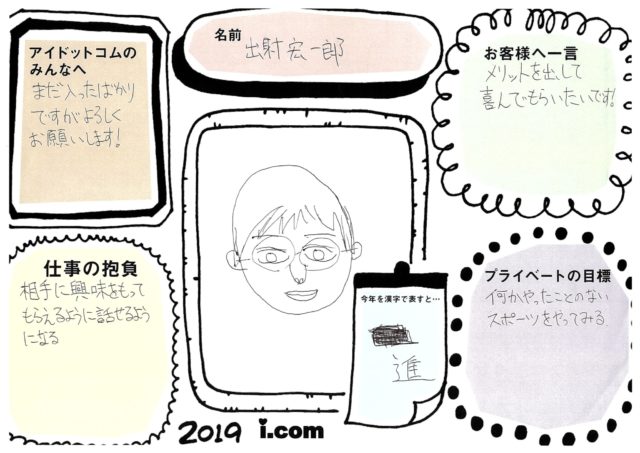 名前
出射宏一郎
アイドットコムの
みんなへ
まだ入ったばかり
ですがよろしく
お願いします!
お客様へ一言
メリットを出して
喜んでもらいたいです!
仕事の抱負
相手に興味をもって
もらえるように話せるよう
になる
今年を漢字で表すと…
進
プライベートの目標
何かやったことのない
スポーツをやってみる
2019 i.com